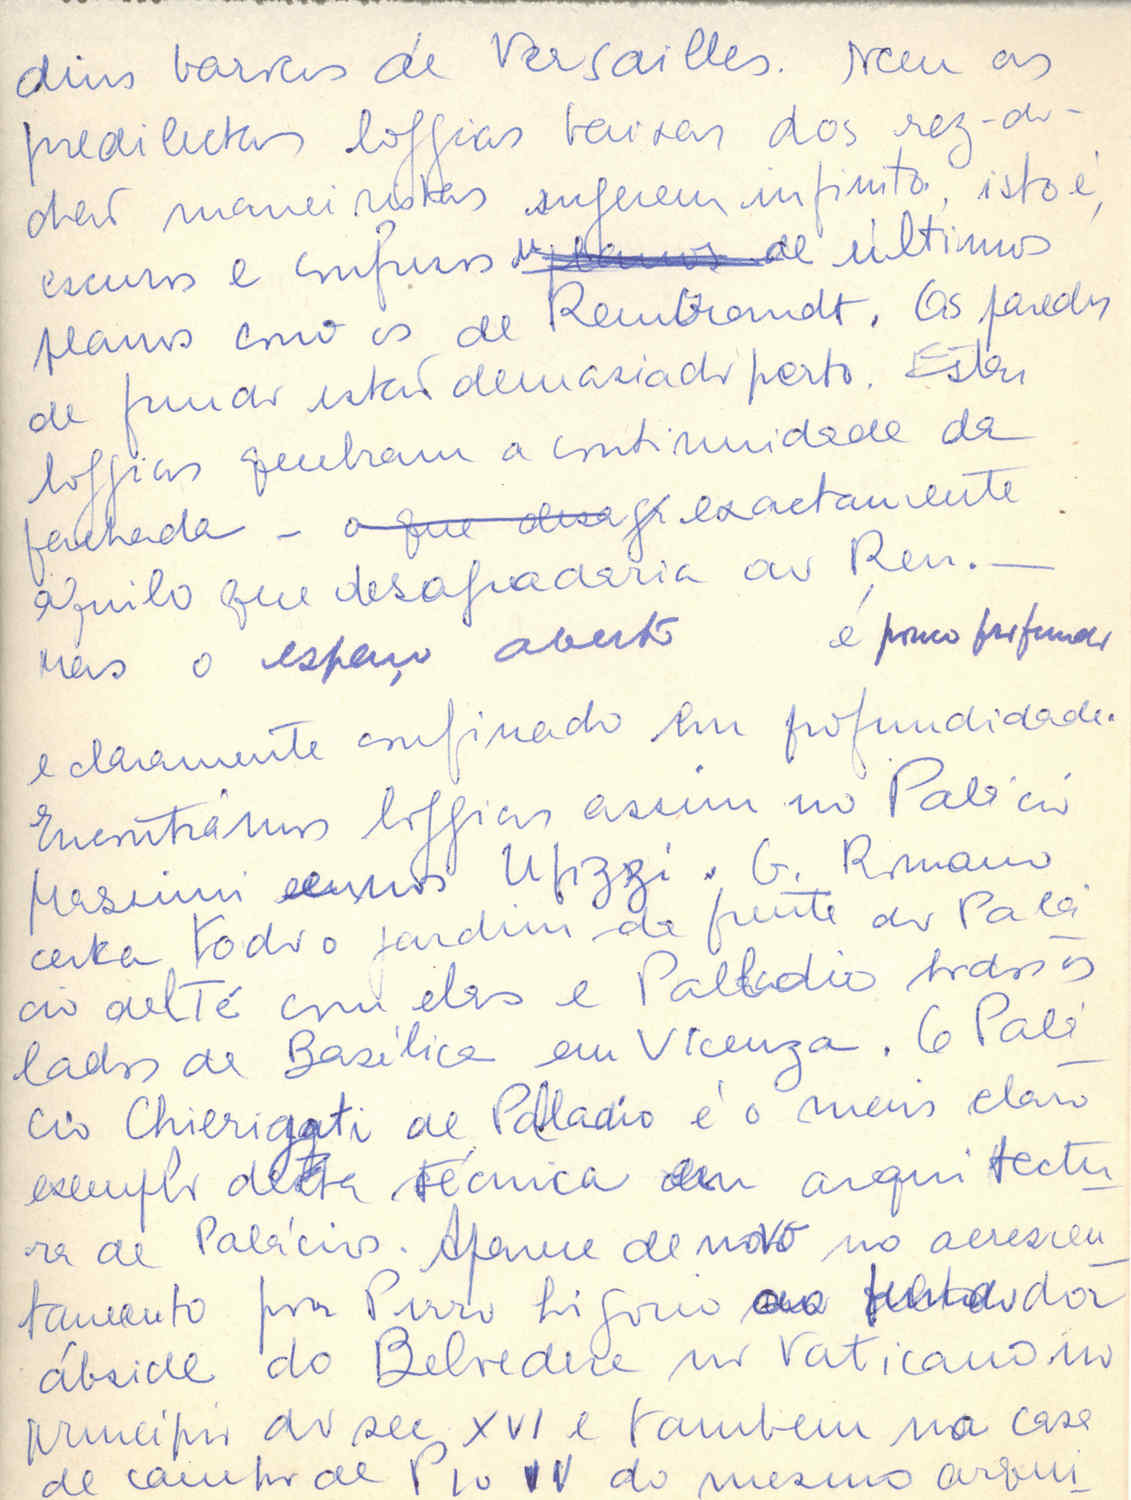 dins barrocos de Versailles. Nem as
predilectas loggias baixas dos rez-do-
chão maneiristas sugerem infinito, isto é,
escuros e confusos planos de últimos
planos como os de Rembrandt. As paredes
de fundo estão demasiado perto. Estas
loggias quebram a continuidade da
fachada – o que desag exactamente
aquilo que desagradaria ao Ren. —
mas o espaço aberto é pouco profundo
e claramente confinado em profundidade.
Encontrámos loggias assim no Palácio
Massimi e nos Ufizzi. G. Romano
cerca todo o jardim da frente do Palá
cio del Té com elas e Palladio todos os
lados de Basílica em Vicenza. O Palá
cio Chierigati de Palladio é o mais claro
exemplo desta técnica em arquitectu
ra de Palácios. Aparece de novo no acrescen
tamento por Pirro Ligorio da
ábside do Belvedere no Vaticano no
princípio do sec XVI e tambem na casa
de campo de Pio IV do mesmo arqui